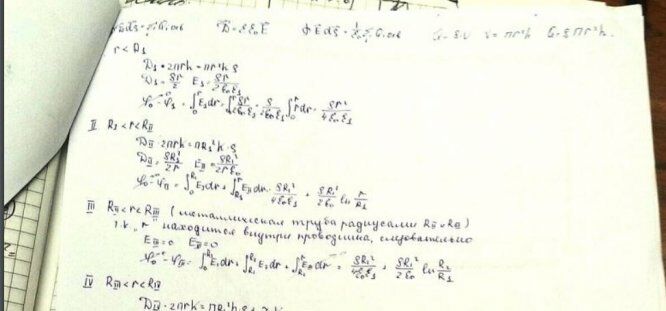 ∮D̄dS̄ = Σqᵢ cвоб    D̄ = εε₀Ē    ∮ĒdS̄ = 1/ε₀ Σqᵢ cвоб    q = ρ·V    V = πr²h    q = ρπr²h.
r < R₁
D₁ · 2πrh = πr²h ρ
D₁ = ρr/2    E₁ = ρr/2ε₀ε₁
φ₀ - φ₁ = ∫₀ʳ E₁dr = ∫₀ʳ ρr/2ε₀ε₁ = ρ/2ε₀ε₁ ∫₀ʳ rdr = ρr²/4ε₀ε₁
II    R₁ < r < R_II
D_II · 2πrh = πR₁²h · ρ
D_II = ρR₁²/2r    E_II = ρR₁²/2rε₀
φ₀ - φ_II = ∫₀^R₁ E₁dr + ∫_R₁^r E_II dr = ρR₁²/4ε₀ε₁ + ρR₁²/2ε₀ ln r/R₁
III    R_II < r < R_III (металлическая труба радиусами R_II и R_III)
т.к. "r" находится внутри проводника, следовательно
E_III = 0    D_III = 0
φ₀ - φ_III = ∫₀^R₁ E₁dr + ∫_R₁^R₂ E₂dr + ∫_R₂^r E₃dr = ρR₁²/4ε₀ε₁ + ρR₁²/2ε₀ ln R₂/R₁
IV    R_III < r < R_IV
D_IV · 2πrh = πR₁²h · ρ